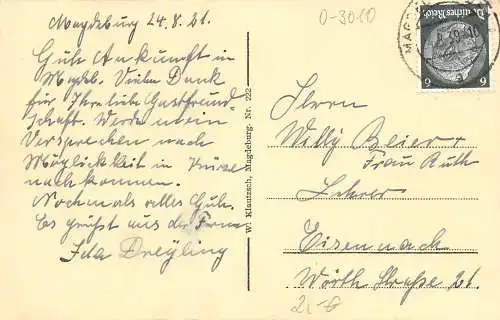 Magdeburg 24.8.21.
Gute Ankunft in
Magdeb. Vielen Dank
für Ihre liebe Gastfreund-
schaft. Werde mein
Versprechen nach
Möglichkeit in Kürze
nachkommen.
Nochmals alles Gute.
Es grüßt aus der Ferne
Ida Dreyling
W. Klautzsch, Magdeburg. Nr. 222
0-3010
MAGD
Deutsches Reich
6 6
Herrn
Willy Beier +
Frau Ruth
Lehrer
Eisenach
Wörth Straße 21.